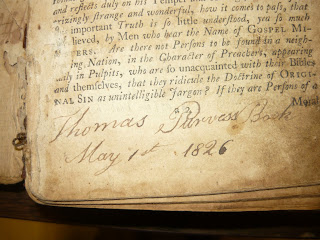 and reflects duly on his Temper
prizingly strange and wonderful, how it comes to pass, that
important Truth is so little understood, yea so much
lieved, by Men who wear the Name of GOSPEL MI-
ERS. Are there not Persons to be found in a neigh-
ing Nation, in the Character of Preachers, appearing
ly in Pulpits, who are so unacquainted with their Bibles
and themselves, that they ridicule the Doctrine of ORIGI-
NAL SIN as unintelligible Jargon? If they are Persons of a
Moral
Thomas Purvass Book
May 1st 1826